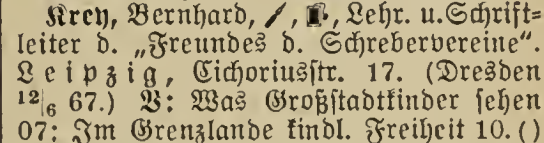 Krey, Bernhard, Lehr. u. Schrift-
leiter d. „Freundes d. Schrebervereine“.
Leipzig, Cichoriusstr. 17. (Dresden
12|6 67.) V: Was Großstadtkinder sehen
07: Im Grenzlande kindl. Freiheit 10. ()